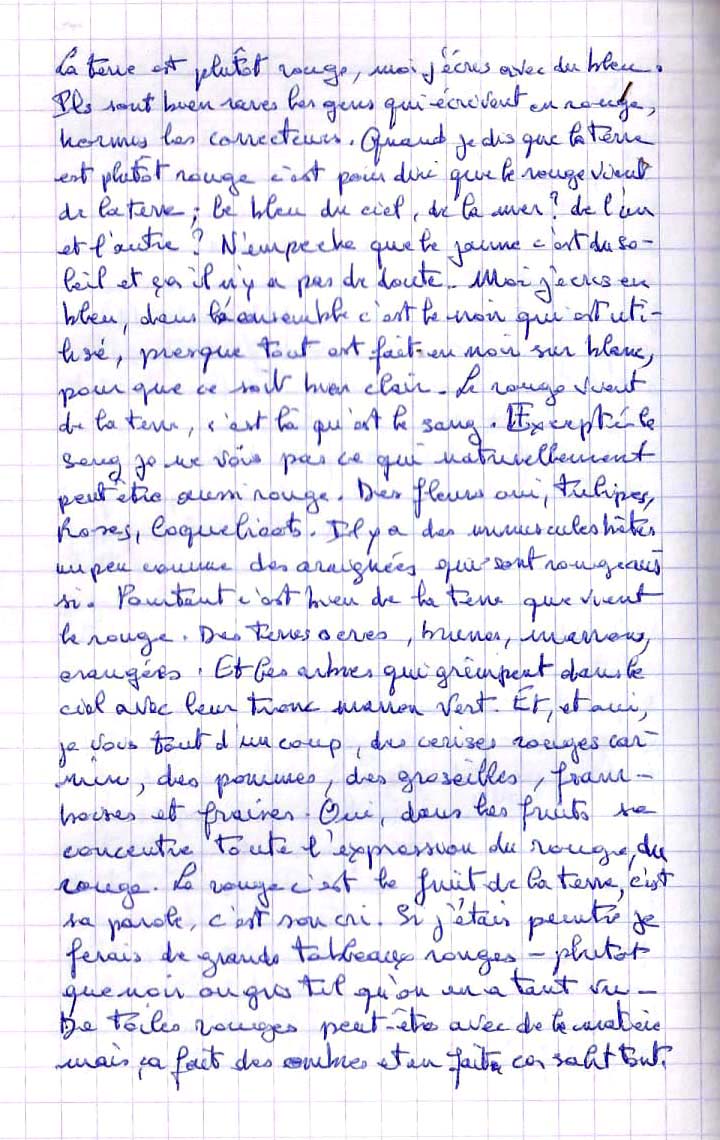 La terre est plutôt rouge, moi j'écris avec du bleu.
Ils sont bien rares les gens qui écrivent en rouge,
hormis les correcteurs. Quand je dis que la terre
est plutôt rouge c'est pour dire que le rouge vient
de la terre ; le bleu du ciel, de la mer ? de l'un
et l'autre ? N'empeche que le jaune c'est du so-
leil et ça il n'y a pas de doute. Moi j'écris en
bleu, dans l'ensemble c'est le noir qui est uti-
lisé, presque tout est fait en noir sur blanc,
pour que ce soit bien clair. Le rouge vient
de la terre, c'est là qu'est le sang. Excepté le
sang je ne vois pas ce qui naturellement
peut être aussi rouge. Des fleurs oui, tulipes,
Roses, Coquelicots. Il y a des minuscules bêtes
un peu comme des araignées qui sont rouges aus
si. Pourtant c'est bien de la terre que vient
le rouge. Des terres ocres, brunes, marrons,
orangées. Et les arbres qui grimpent dans le
ciel avec leur tronc marron vert. Et, et oui,
je vois tout d'un coup, des cerises rouges car-
min, des pommes, des groseilles, fram-
boises et fraises. Oui, dans les fruits se
concentre toute l'expression du rouge, du
rouge. Le rouge c'est le fruit de la terre, c'est
sa parole, c'est son cri. Si j'étais peintre je
ferais de grands tableaux rouges - plutot
que noir ou gris tel qu'on en a tant vu -
De toiles rouges peut-être avec de la matière
mais ça fait des ombres et en fait ça salit tout.